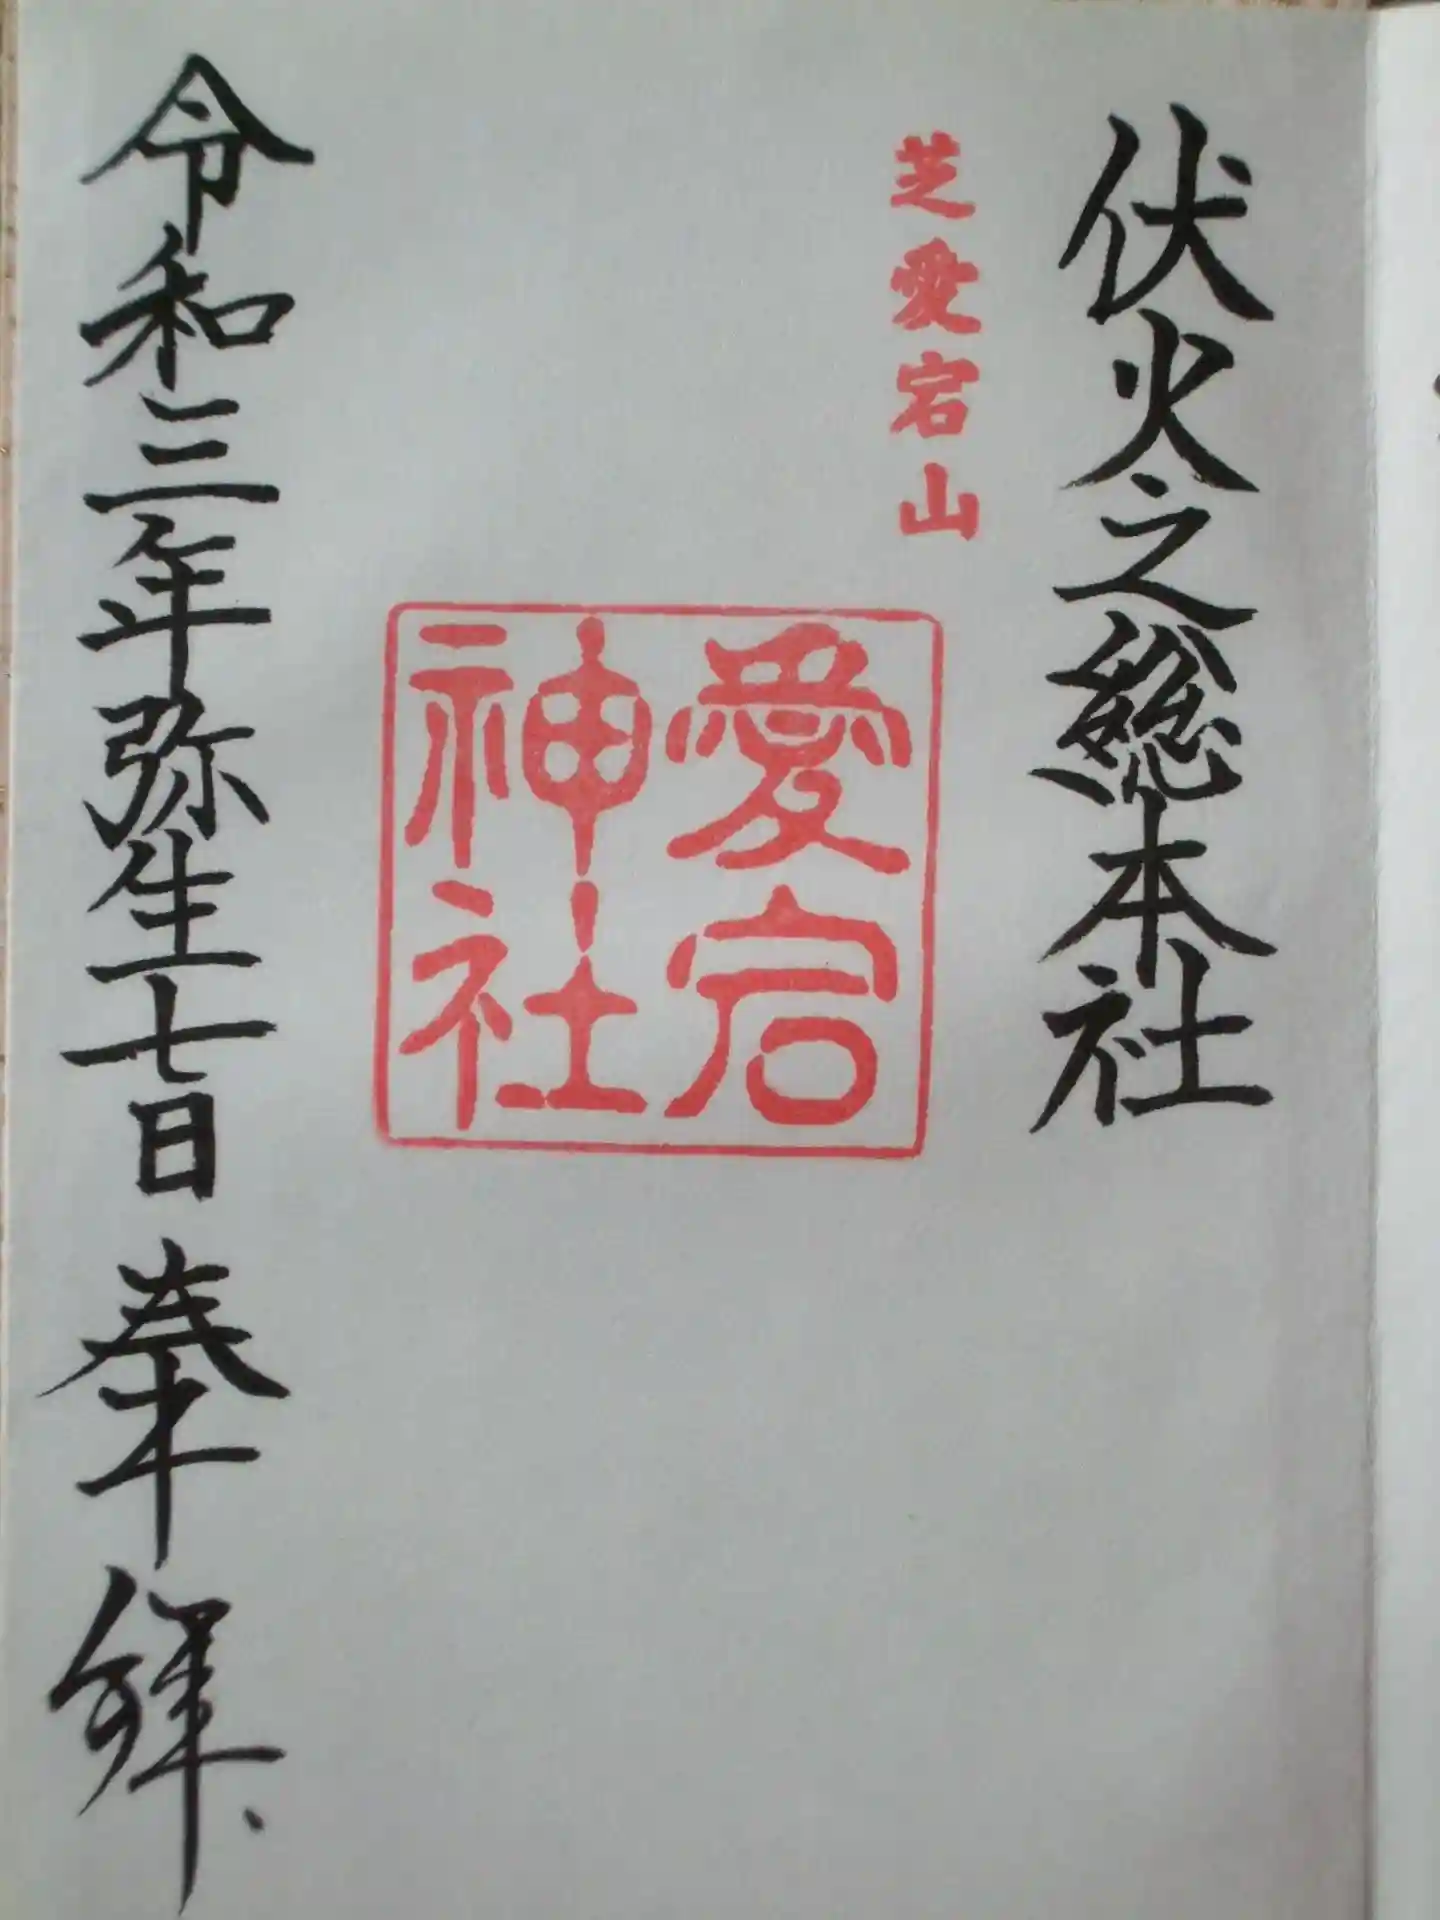 伏火之総本社
芝愛宕山
愛宕
神社
令和三年弥生七日 奉拝